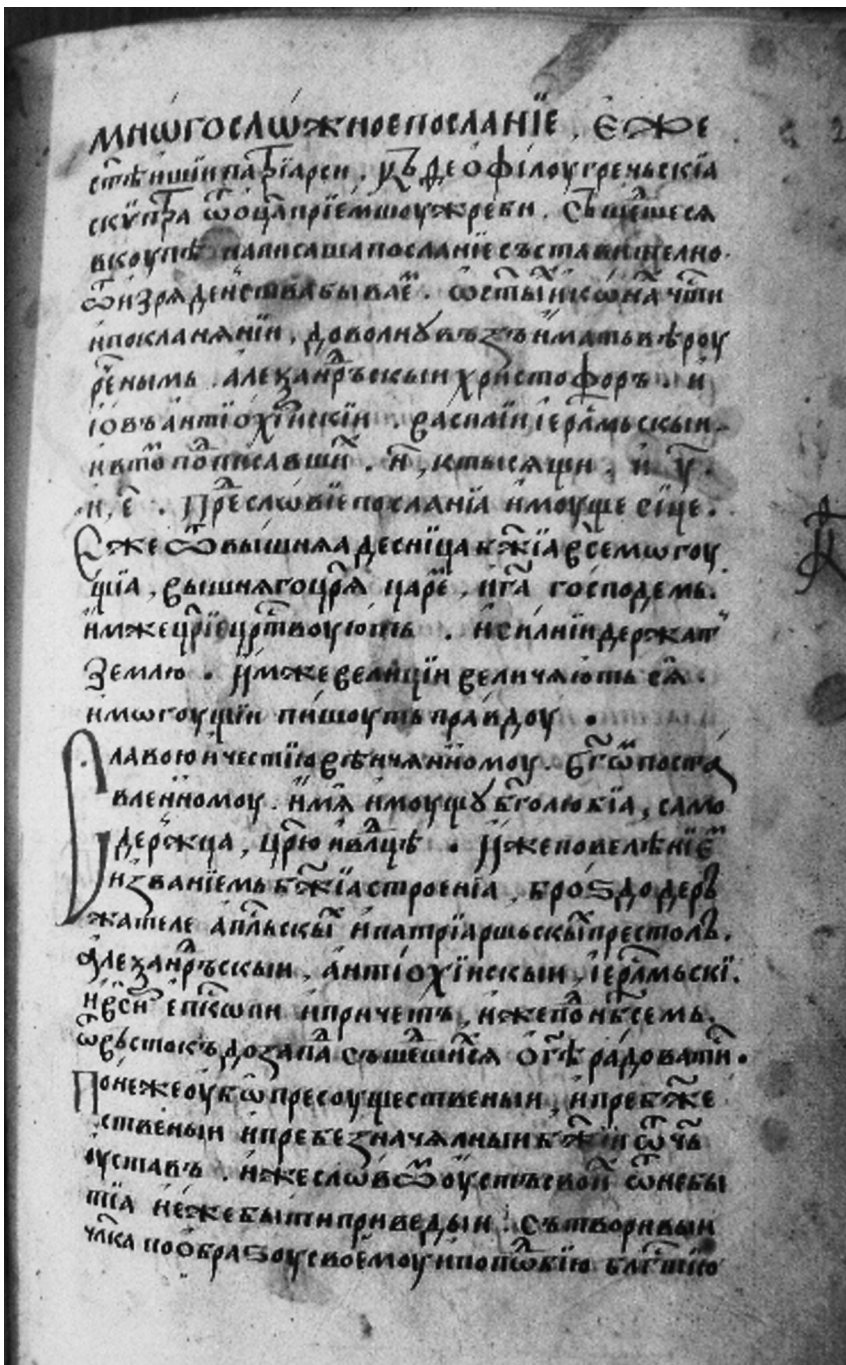 мнѡгослѡ́жное посланїе . єже
ст҃ѣишїи патрїа́рси . къ Ѳеѻ҆фі́лоу гре́чьскїа
скѵ́птра ѿ ѻ҆ца̀ прїе́мшоу жре́би . съше́дшеся
вкоу́пѣ написа́ша посла́нїе състави́телно
ѿ изря́денства быва́е . ѡ҆ ст҃ы́и и҆кѡ́на чт҃и
и҆ покланя́нїи , дово́лну въз̾и́мать вѣ́роу
рече́нымь . але́ѯан҆дръскыи хри́стофоръ . и҆
і҆ѡ́въ а҆нтїѻхі́искїи . васи́лїи і҆ер҃л҃мьскыи .
и҆ в то по́дписавши . и҃ , к тысящи . и҆ у҃ .
и҃ , е҃ . Пре́слѡвїе посла́нїа и҆моуще си́це .
Єже ѿ вы́шняа десни́ца бж҃їа всемѡгоу
щїа , вы́шняго цр҃я царе́ , и҆ г҃а госпо́демь .
и҆мже цр҃їе цр҃твоу́ють . и҆ си́лнїи держа́т
зе́млю . И҆мже вели́цїи велича́ють ся .
и҆ мѡгоу́щїи пи́шоуть пра́вдоу .
Сла́вою и҆ че́стїю вѣнчя́нномоу . бг҃ѡм поста
вле́нномоу . и҆́мя и҆моущу бг҃олю́бїа , само
де́ржца , цр҃ю и҆ вл҃цѣ . И҆же повелѣ́нїе
и҆ зва́нїемь бж҃їа строе́нїа , бро́ꙃдодер
жателе а҆пл҃ьскы и҆ патрїа́ршьскы престо́лъ .
а҆ле́ѯан҆дръскыи , а҆нтїѻ́хїискыи , і҆ер҃л҃мьскї .
и҆ вси́ е҆пк҃ѡпи и҆ при́четъ , и҆же по́д нб҃семь .
ѿ въсто́къ до за́пад съше́дшїися ѻ҆ г҃ѣ ра́доватї .
Поне́же оу҆́бѡ пресоуще́ственыи , и҆ пребж҃е
ственыи и҆ пребезнача́лныи бж҃їи ѿчь
оу҆ста́въ . и҆же сло́вѡм оу҆стъ свои́ ѿ небы
тїа не́же бы́ти приведы́и . сътвори́выи
чл҃ка по ѻ҆́браꙃоу своемоу и҆ по подо́бїю бл҃г҃тїю